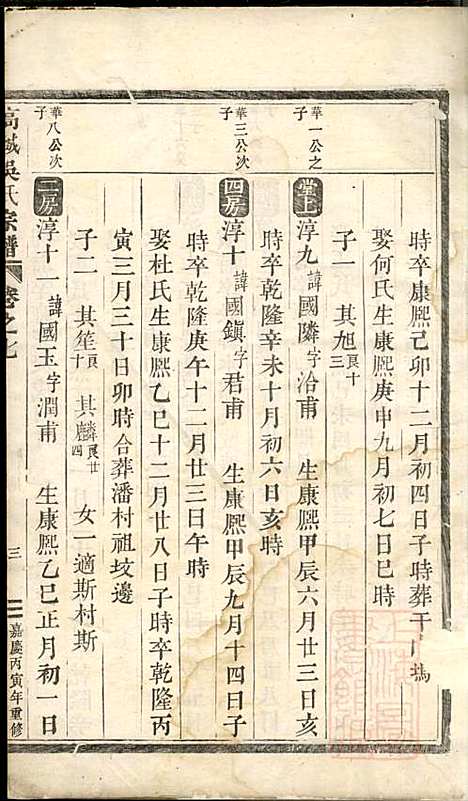 時卒康熙己卯十二月初四日子時葬于
娶何氏生康熙庚申九月初七日巳時
子一 其旭 艮十三
華一公之子
堂上 淳九 諱國隣 字洽甫 生康熙甲辰六月廿三日亥
時卒乾隆辛未十月初六日亥時
華三公次子
四房 淳十 諱國鎮 字君甫 生康熙甲辰九月十四日子
時卒乾隆庚午十二月廿三日午時
娶杜氏生康熙乙巳十二月廿八日子時卒乾隆丙
寅三月三十日卯時合葬潘村祖坟邊
子二 其笙 艮十 其麟 艮廿四 女一適斯村斯
華八公次子
二房 淳十一 諱國玉 字潤甫 生康熙乙巳正月初一日
高城吳氏宗譜 卷之七 三 嘉慶丙寅年重修